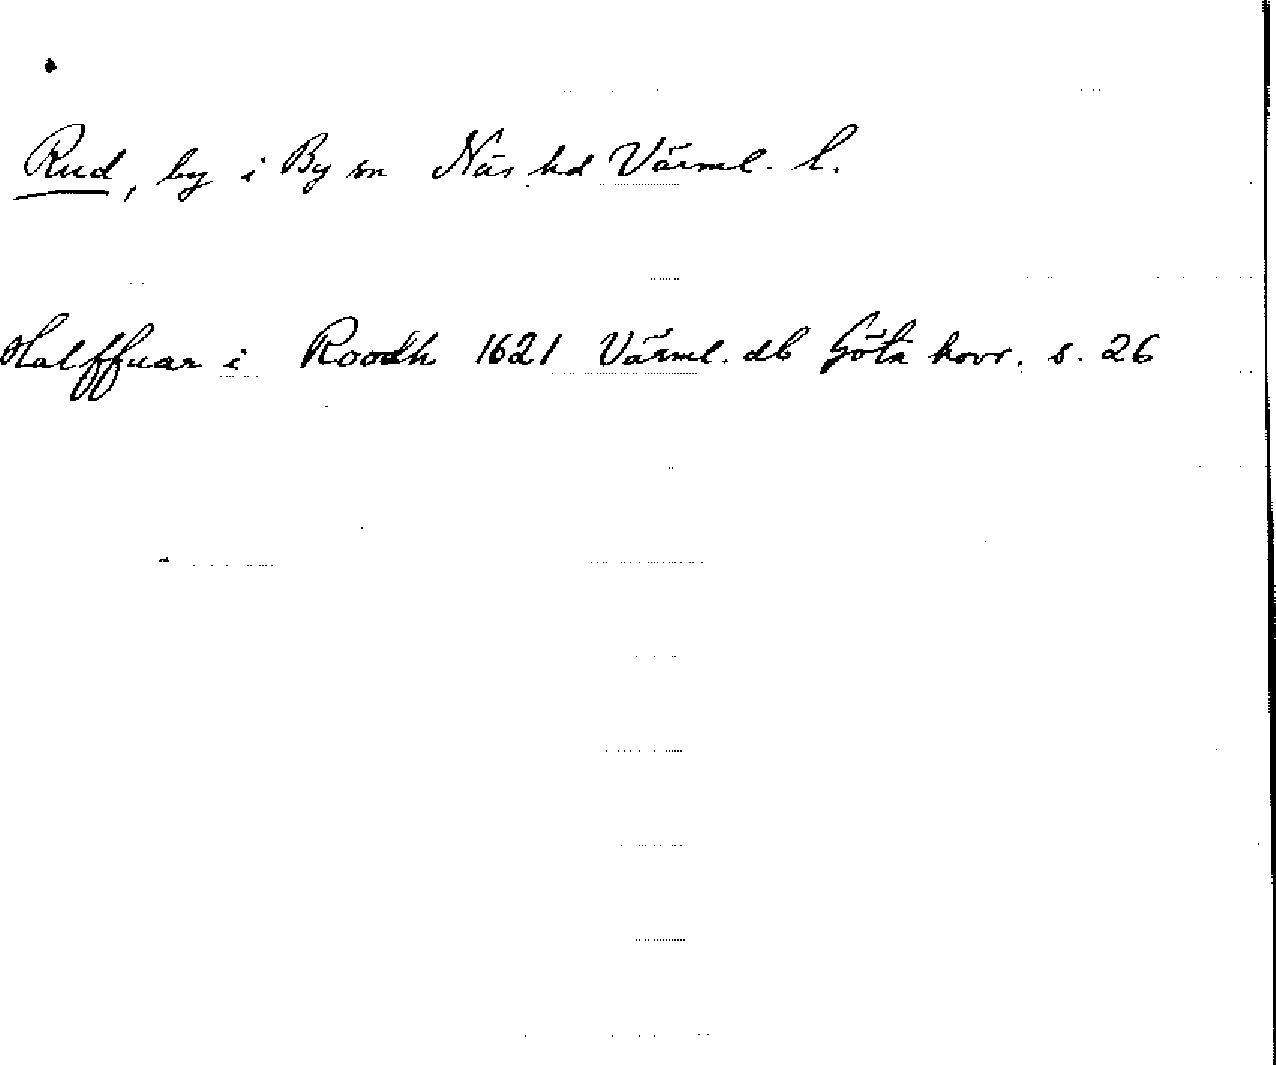 Rud, by i By sn Näs hd Värml. l.
Halffuar i Roodh 1621 Värml. db Göta hovr. s. 26